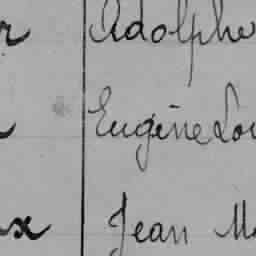 r Adolphe
Eugène Lou
x Jean M